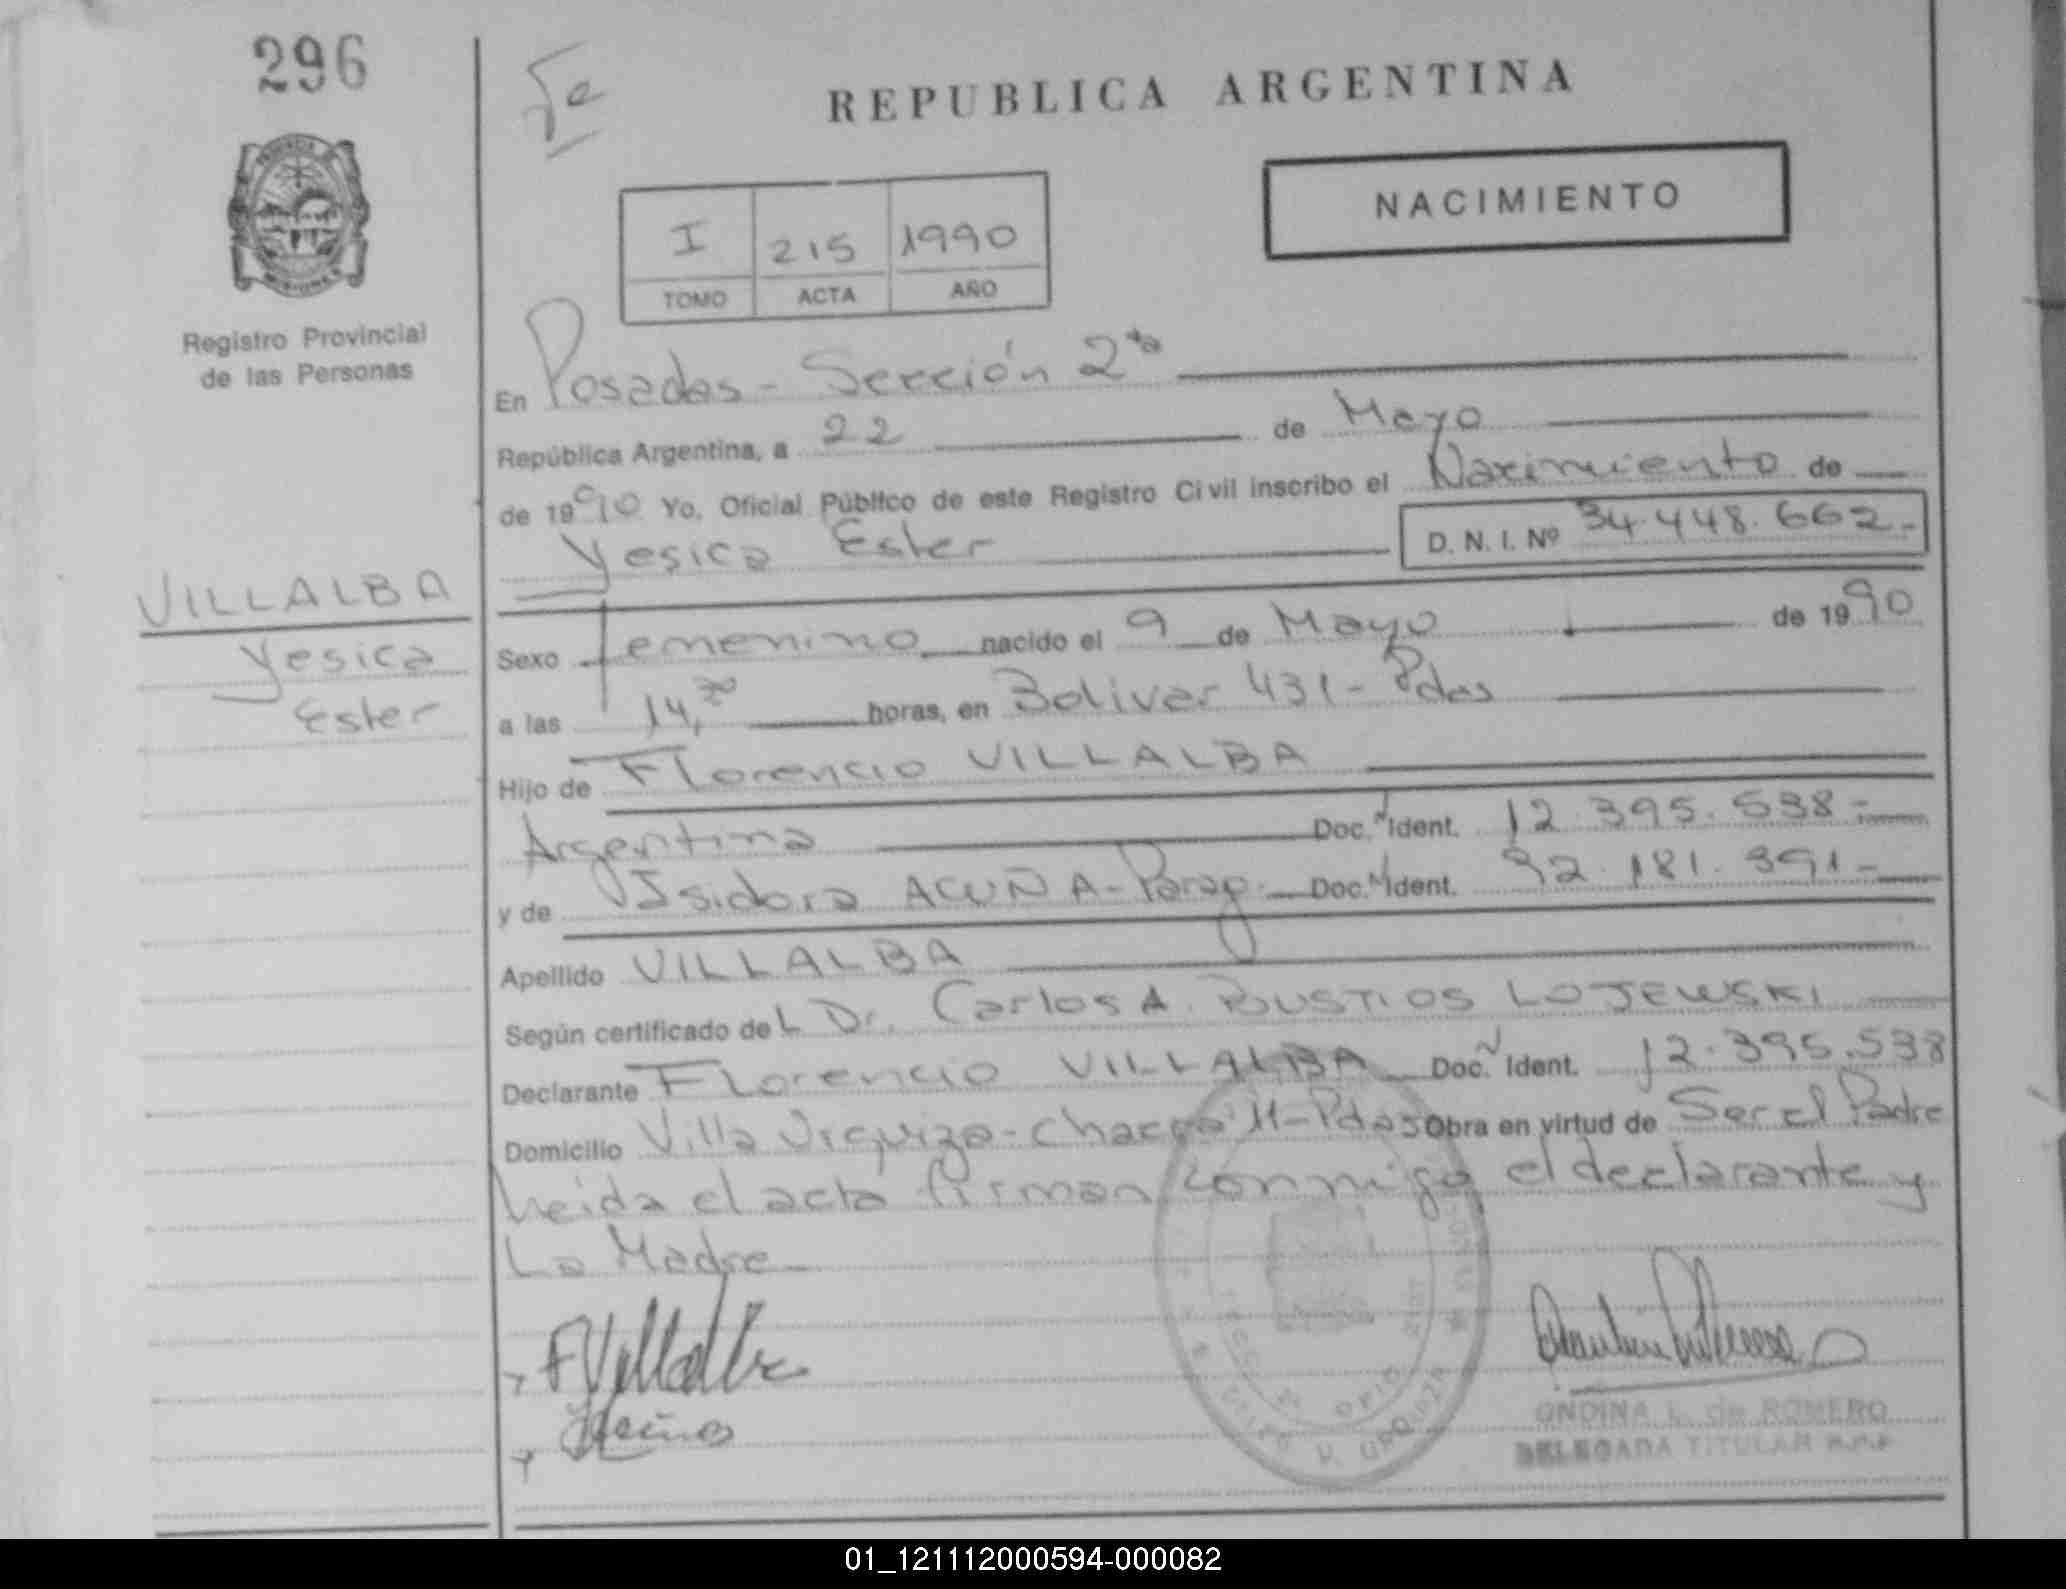 296
REPUBLICA ARGENTINA
NACIMIENTO
I 215 1990
TOMO ACTA AÑO
Registro Provincial
de las Personas
En Posadas - Sección 2ta
República Argentina, a 22 de Mayo
de 1990 Yo, Oficial Público de este Registro Civil inscribo el Nacimiento de
Yesica Ester D. N. I. Nº 34.448.662.-
VILLALBA
Yesica
Ester
Sexo femenino nacido el 9 de Mayo de 1990
a las 14,30 horas, en Bolivar 431 - Pdas
Hijo de Florencio VILLALBA
Argentina Doc. N Ident. 12.395.538.-
y de Isidora ACUÑA - Parag. Doc. N Ident. 92.181.391-
Apellido VILLALBA
Según certificado del Dr. Carlos A. BUSTIOS LOJEWSKI
Declarante Florencio VILLALBA Doc. N Ident. 12.395.538
Domicilio Villa Urquiza - Chacra 11 - Pdas Obra en virtud de Ser el Padre
Leida el acta firman conmigo el declarante y
La Madre
F Villalba
ONDINA L. de ROMERO
DELEGADA TITULAR R.P.P
V. URQUIZA
01_121112000594-000082